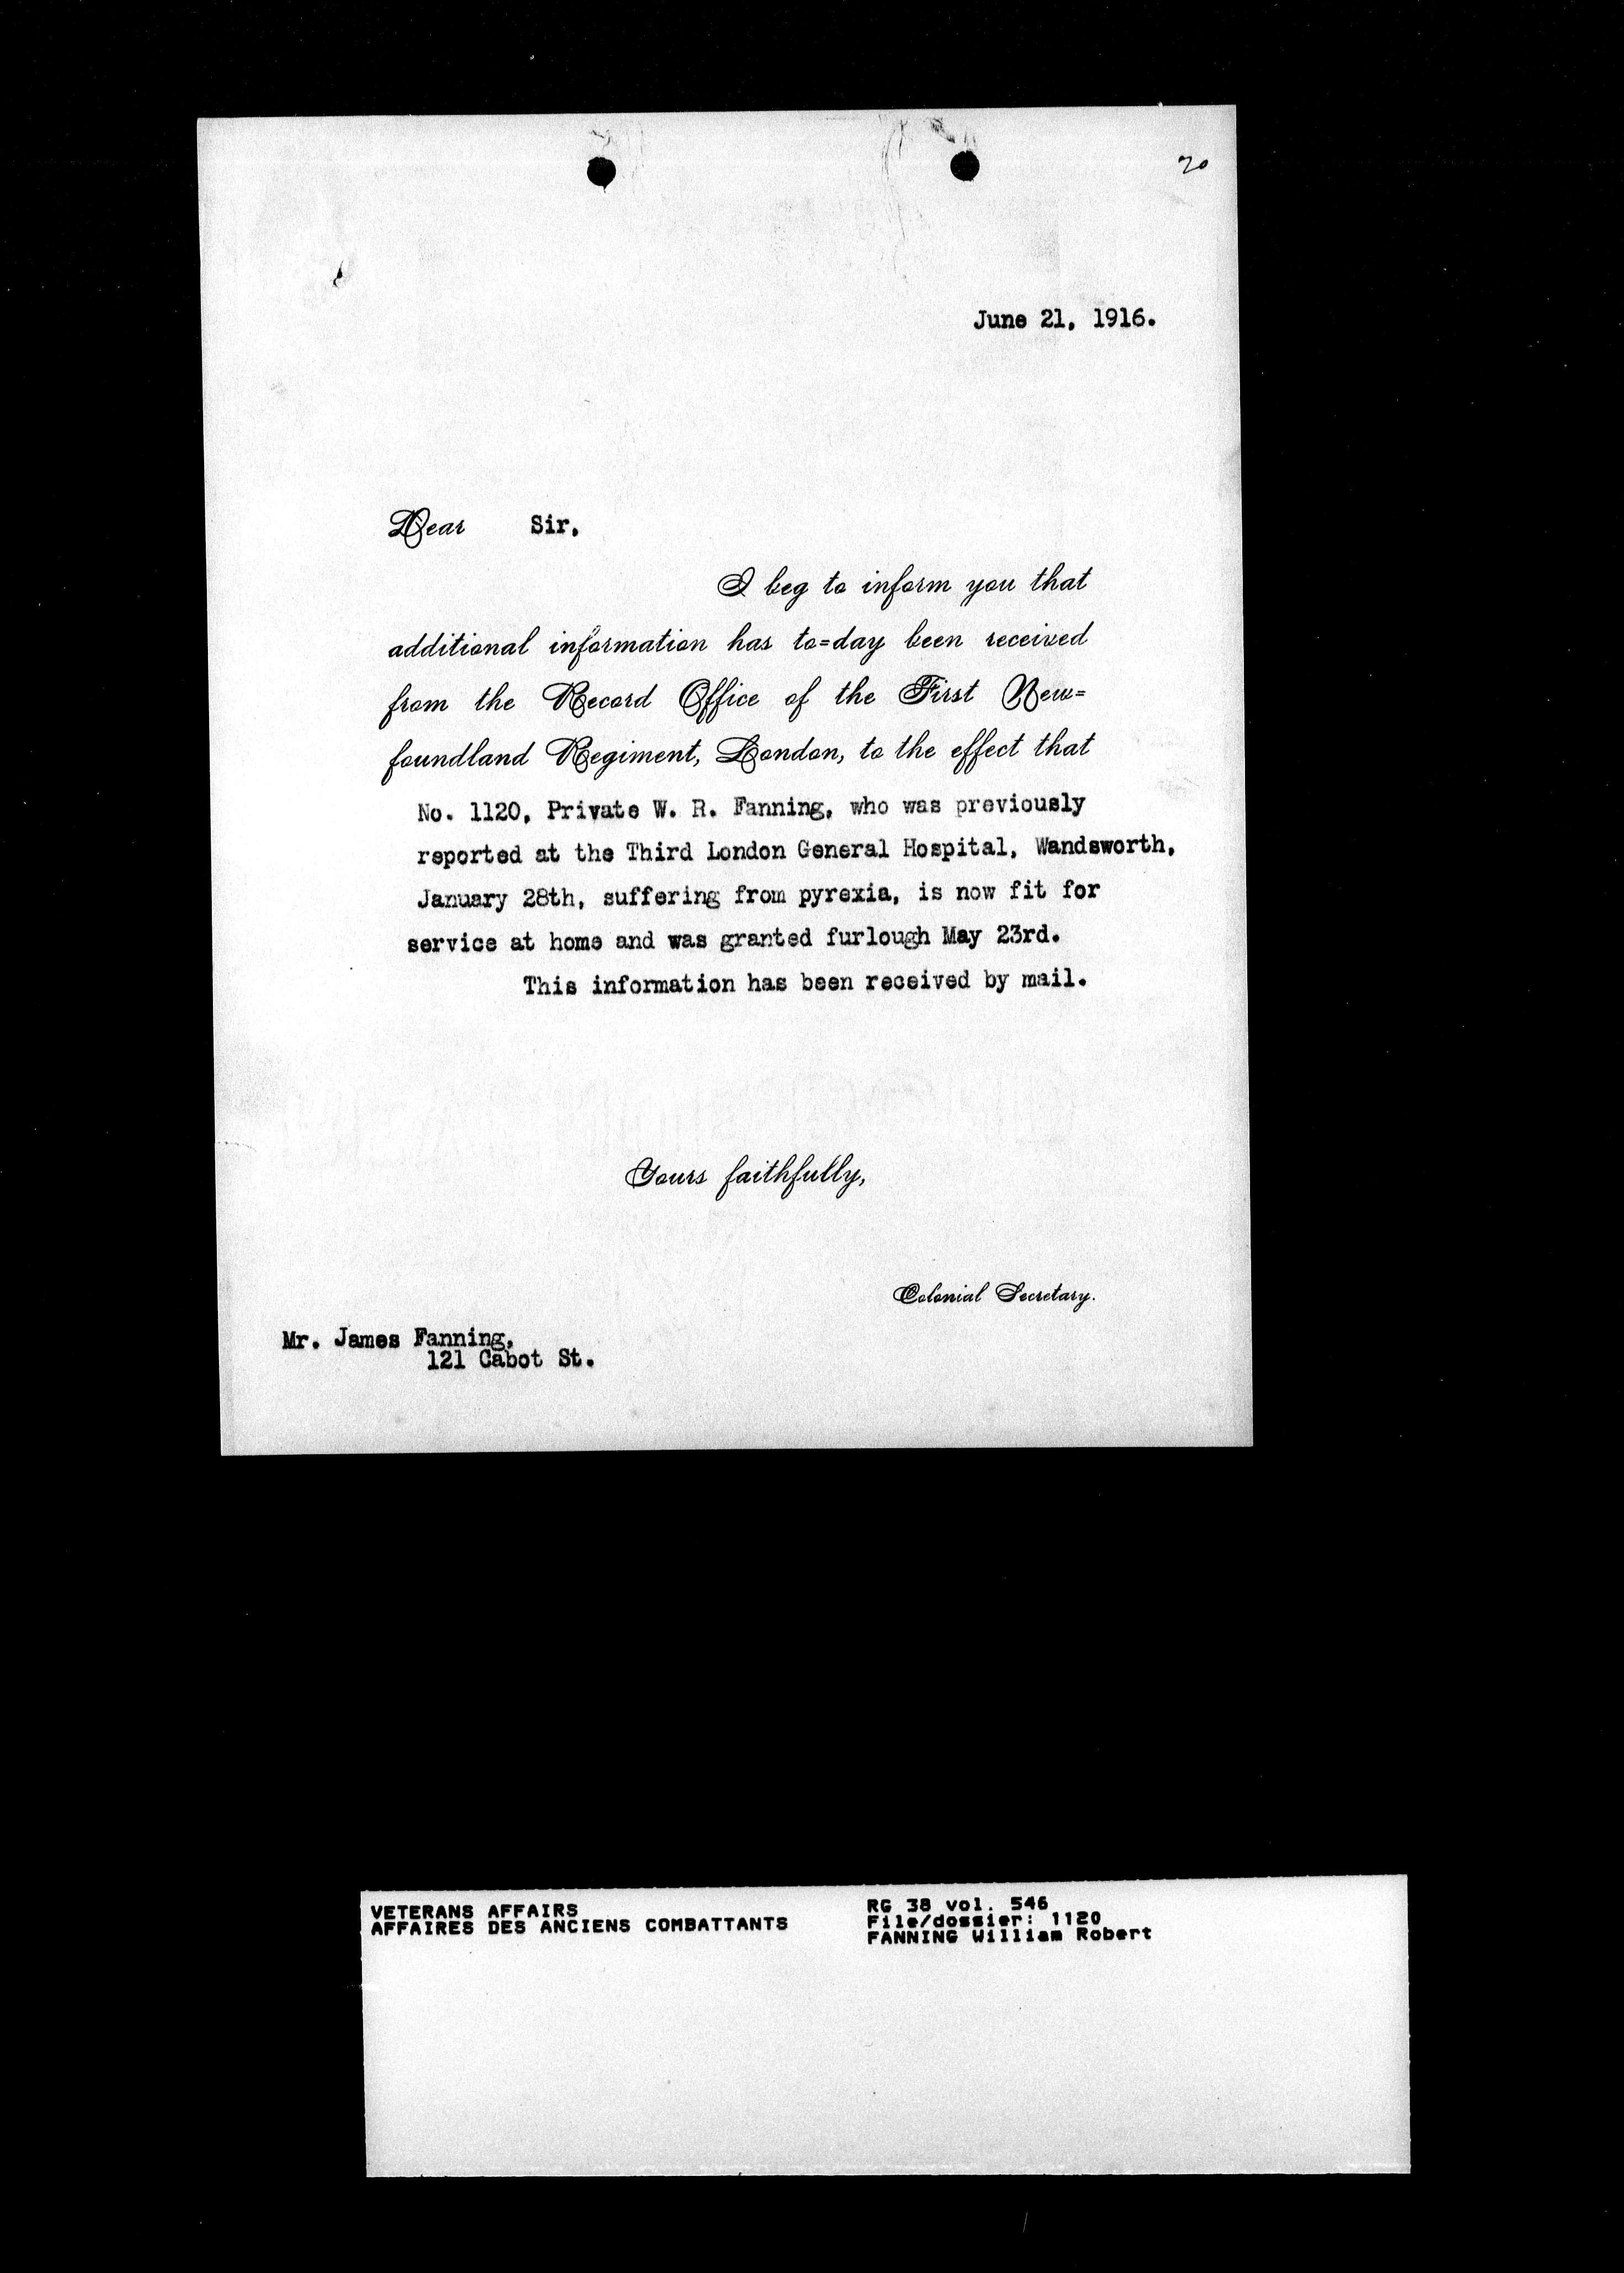 20
June 21, 1916.
Dear Sir,
I beg to inform you that
additional information has to=day been received
from the Record Office of the First New=
foundland Regiment, London, to the effect that
No. 1120, Private W. R. Fanning, who was previously
reported at the Third London General Hospital, Wandsworth,
January 28th, suffering from pyrexia, is now fit for
service at home and was granted furlough May 23rd.
This information has been received by mail.
Yours faithfully,
Colonial Secretary.
Mr. James Fanning,
121 Cabot St.
VETERANS AFFAIRS
AFFAIRES DES ANCIENS COMBATTANTS
RG 38 vol. 546
File/dossier: 1120
FANNING William Robert